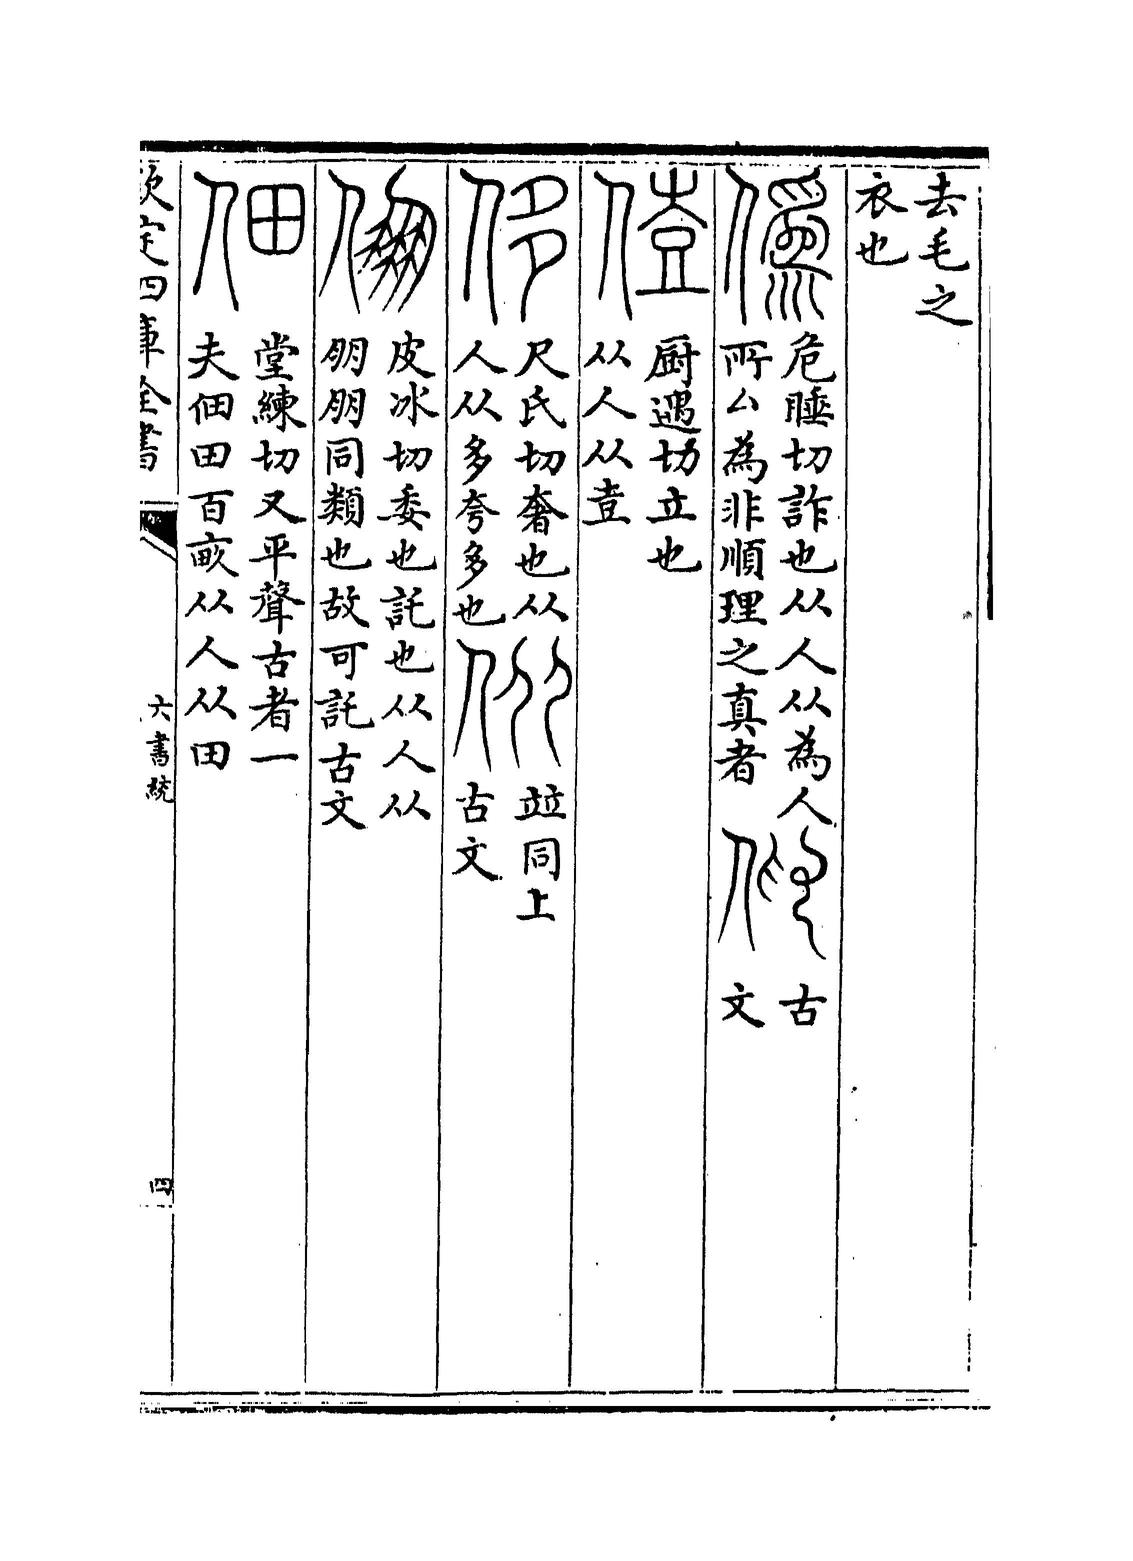 去毛之
衣也
僞
危睡切詐也从人从為人
所厶為非順理之真者
古
文
侸
厨遇切立也
从人从壴
侈
尺氏切奢也从
人从多夸多也
竝同上
古文
倗
皮冰切委也託也从人从
朋朋同類也故可託古文
佃
堂練切又平聲古者一
夫佃田百畝从人从田
欽定四庫全書
六書統
四